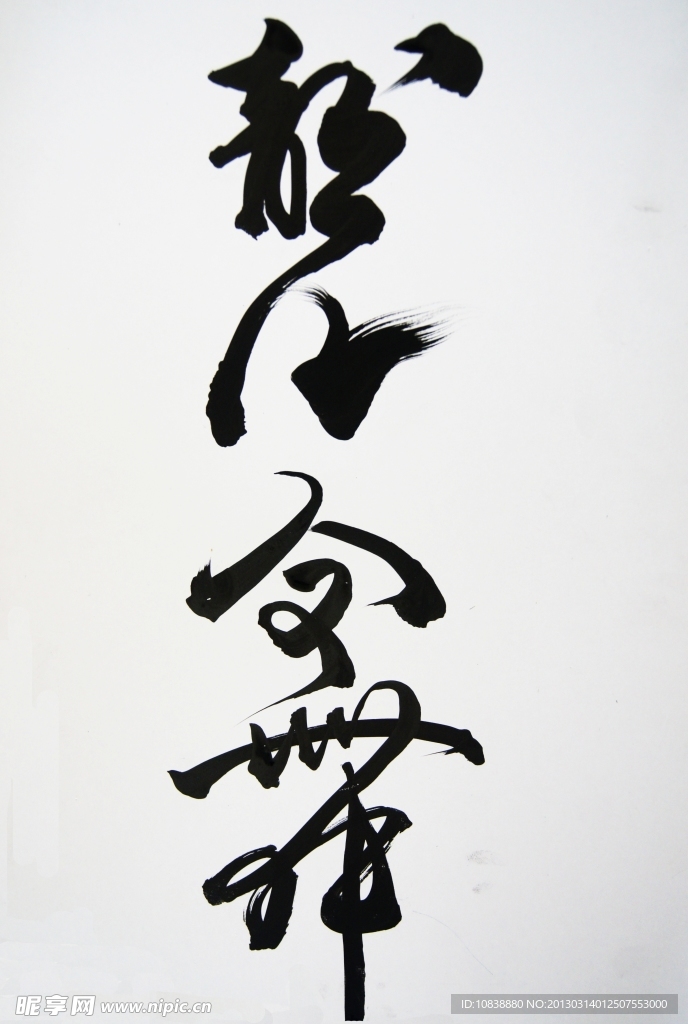 龍飛鳳舞
昵享网 www.nipic.cn
ID:10838880 NO:20130314012507553000